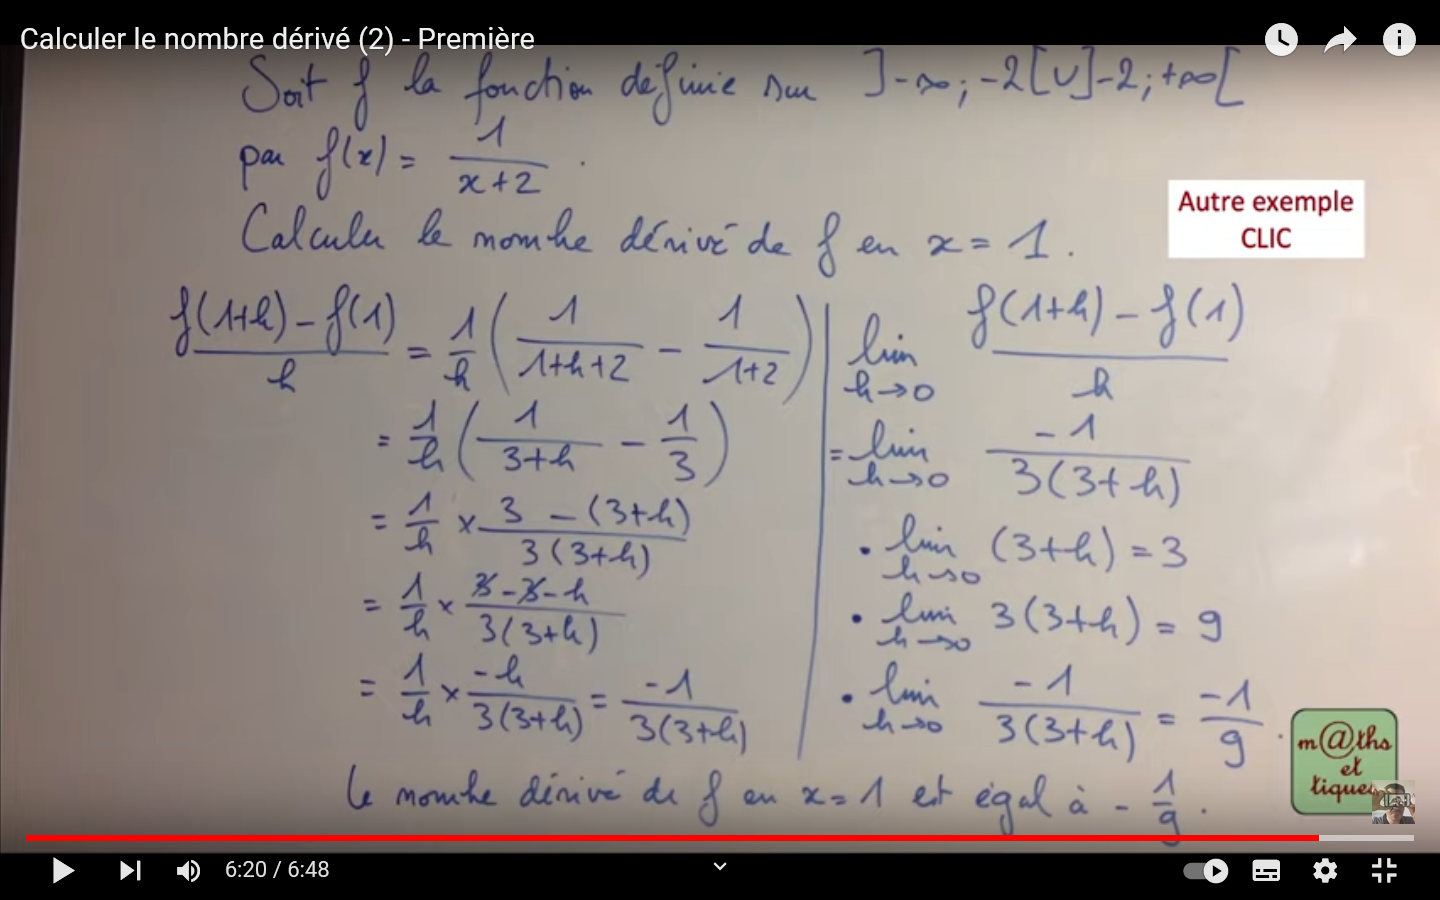 Calculer le nombre dérivé (2) - Première
Soit f la fonction définie sur ]-∞ ; -2[ ∪ ]-2 ; +∞[
par f(x) = 1/(x+2) .
Autre exemple
CLIC
Calculer le nombre dérivé de f en x = 1 .
(f(1+h) - f(1))/h = 1/h (1/(1+h+2) - 1/(1+2))
= 1/h (1/(3+h) - 1/3)
= 1/h × (3 - (3+h))/(3(3+h))
= 1/h × (3 - 3 - h)/(3(3+h))
= 1/h × -h/(3(3+h)) = -1/(3(3+h))
lim h→0 (f(1+h) - f(1))/h
= lim h→0 -1/(3(3+h))
• lim h→0 (3+h) = 3
• lim h→0 3(3+h) = 9
• lim h→0 -1/(3(3+h)) = -1/9 .
Le nombre dérivé de f en x = 1 est égal à - 1/9 .
m@ths
et
tiques
6:20 / 6:48